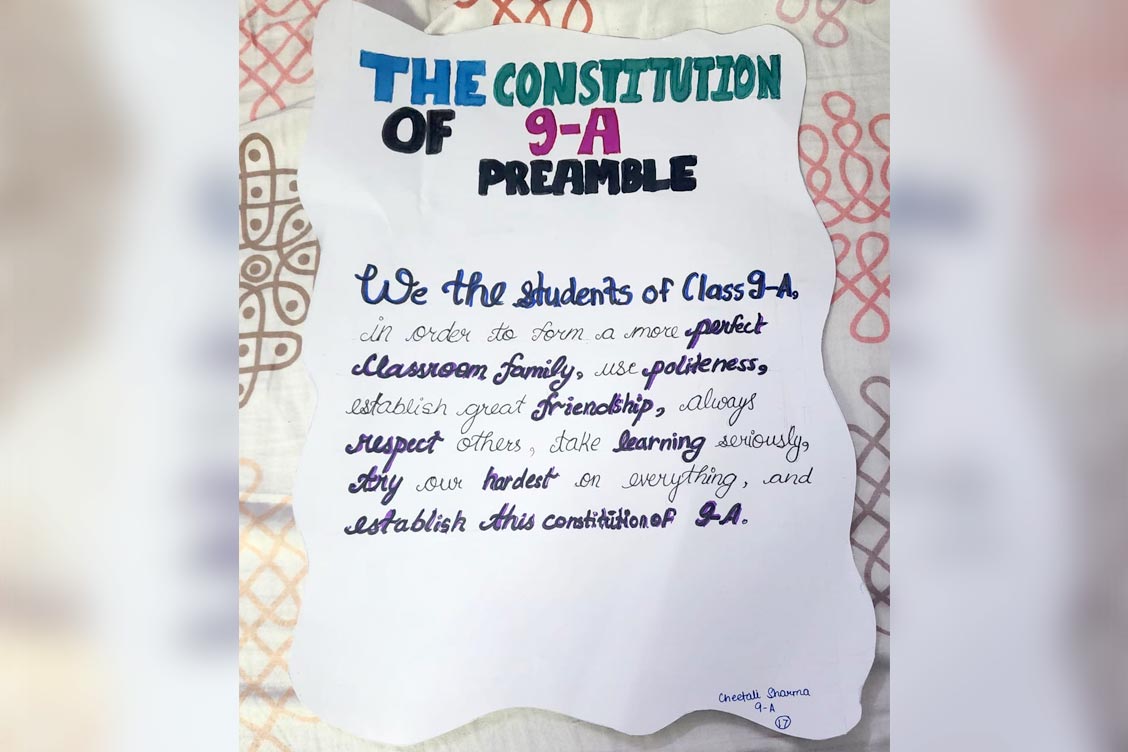 THE CONSTITUTION
OF 9-A
PREAMBLE
We the students of Class 9-A,
in order to form a more perfect
classroom family, use politeness,
establish great friendship, always
respect others, take learning seriously,
try our hardest on everything, and
establish this constitution of 9-A.
Cheetali Sharma
9-A
17